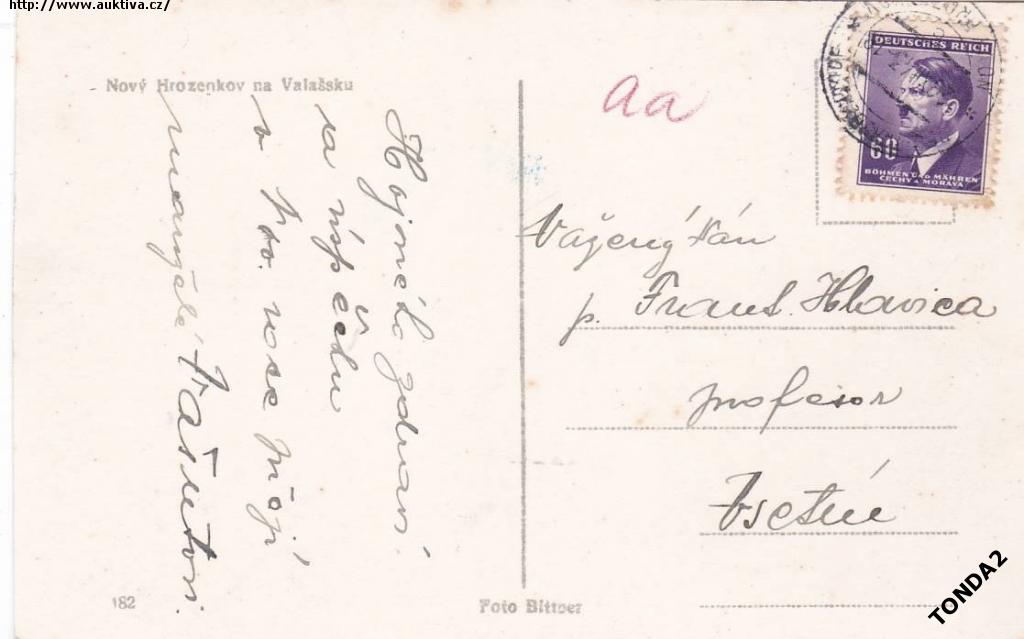 http://www.auktiva.cz/
Nový Hrozenkov na Valašsku
Hojného zdraví
a úspěchu
v no. roce přejí
manželé Vašutovi.
aa
DEUTSCHES REICH
60
BÖHMEN UND MÄHREN
ČECHY A MORAVA
Vážený Pán
p. Frant. Hlavica
profesor
Vsetín
182
Foto Bittner
TONDA2